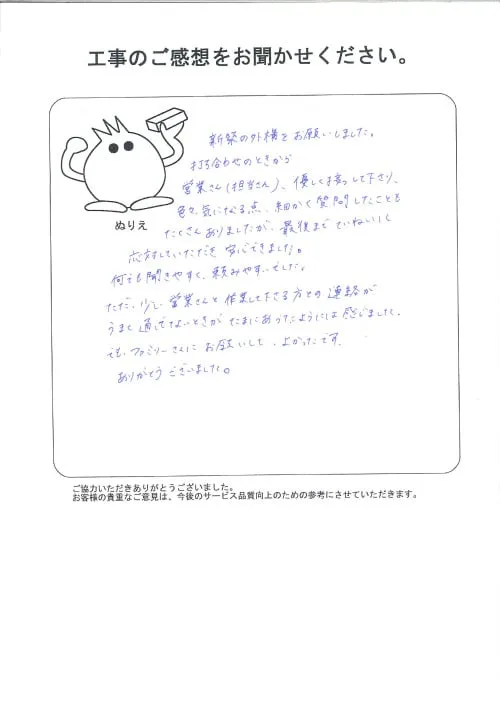 工事のご感想をお聞かせください。
ぬりえ
新築の外構をお願いしました。
打ち合わせのときから
営業さん(担当さん)、優しく接して下さり、
色々、気になる点、細かく質問したことも
たくさんありましたが、最後までていねいに
応対していただき安心できました。
何でも聞きやすく、頼みやすいでした。
ただ、少し営業さんと作業して下さる方との連絡が
うまく通じてないときがたまにあったようには感じました。
でもファミリーさんにお願いして、よかったです。
ありがとうございました。
ご協力いただきありがとうございました。
お客様の貴重なご意見は、今後のサービス品質向上のための参考にさせていただきます。